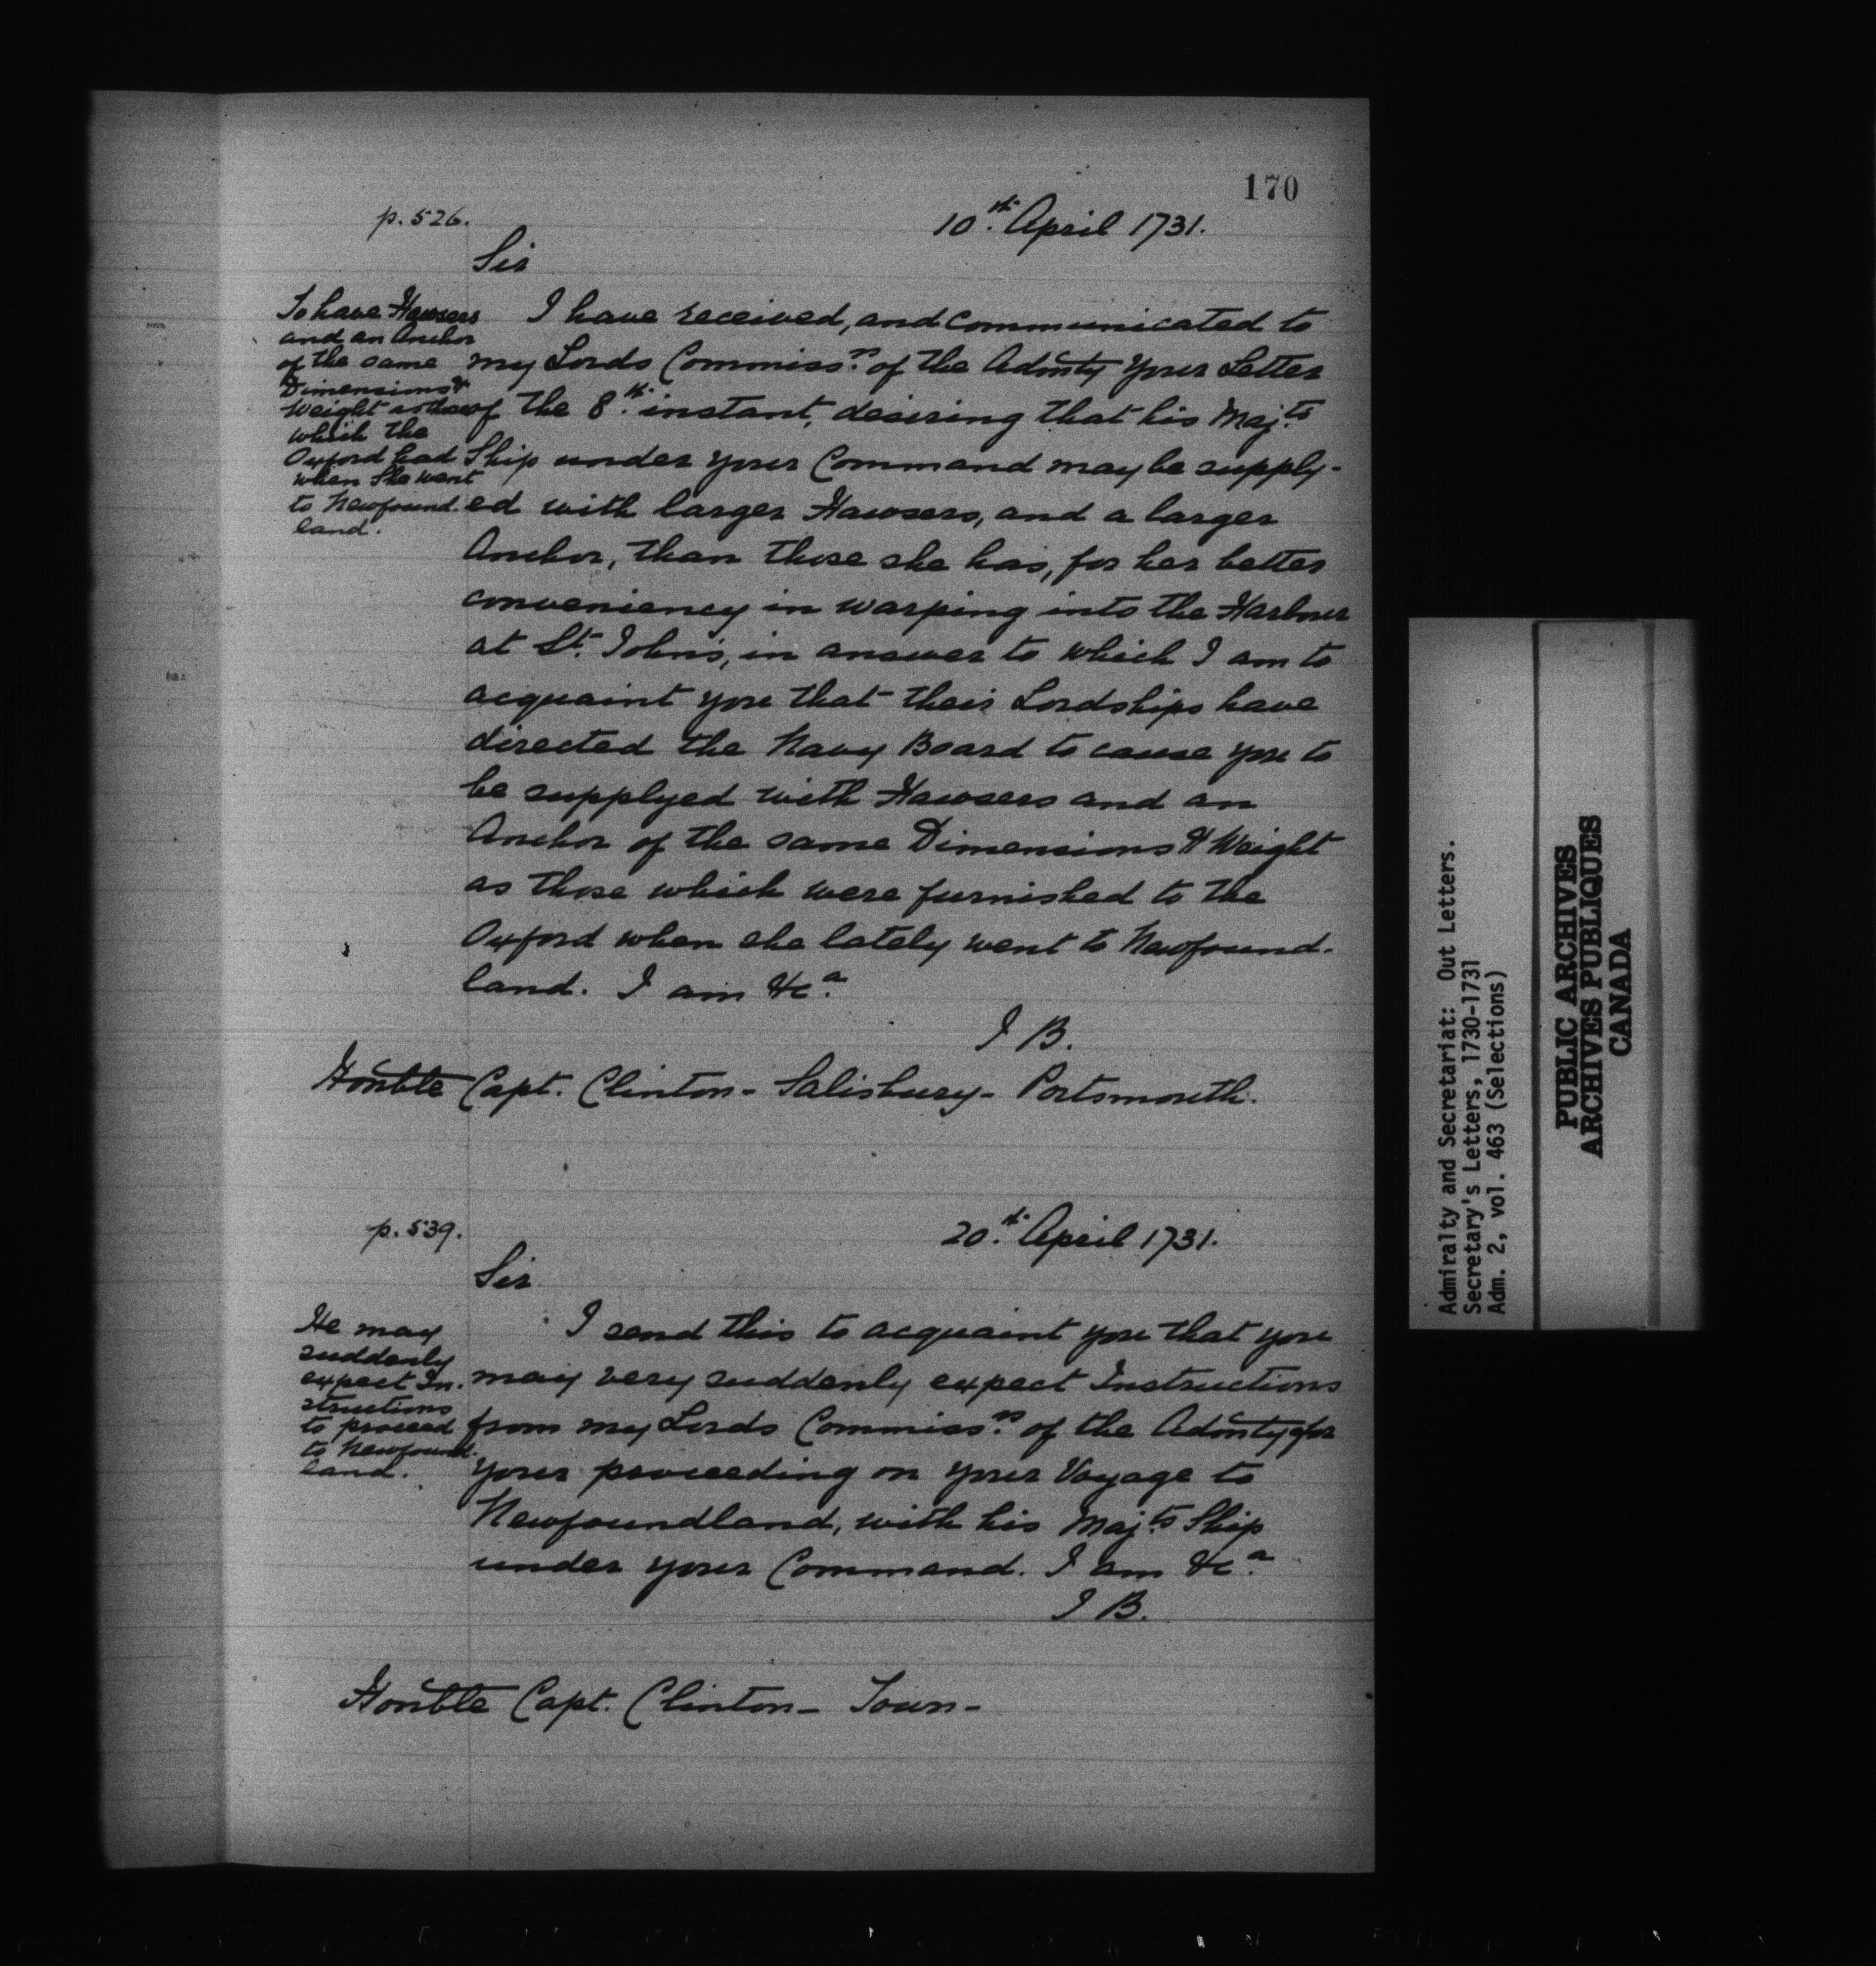 170
p. 526.
10th. April 1731.
Sir
To have Hawsers
and an Anchor
of the same
Dimensions &
Weight as those
which the
Oxford had
when She went
to Newfound-
land.
I have received, and communicated to
my Lords Commissrs. of the Admty Your Letter
of the 8th. instant, desiring that his Majts.
Ship under your Command may be supply-
ed with larger Hawsers, and a larger
Anchor, than those she has, for her better
conveniency in warping into the Harbour
at St. John's, in answer to which I am to
acquaint you that their Lordships have
directed the Navy Board to cause you to
be supplyed with Hawsers and an
Anchor of the same Dimensions & Weight
as those which were furnished to the
Oxford when she lately went to Newfound-
land. I am &ca.
J B.
Honble Capt. Clinton - Salisbury - Portsmouth.
p. 539.
20th. April 1731.
Sir
He may
suddenly
expect In-
structions
to proceed
to Newfound-
land.
I send this to acquaint you that you
may very suddenly expect Instructions
from my Lords Commissrs. of the Admty for
your proceeding on your Voyage to
Newfoundland, with his Majts. Ship
under your Command. I am &ca.
J B.
Honble Capt. Clinton - Town -
Admiralty and Secretariat: Out Letters.
Secretary's Letters, 1730-1731
Adm. 2, vol. 463 (Selections)
PUBLIC ARCHIVES
ARCHIVES PUBLIQUES
CANADA